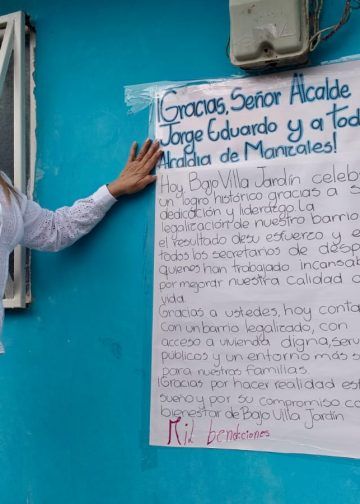 ¡Gracias, Señor Alcalde
Jorge Eduardo y a tod
Alcaldia de Manizales!
Hoy Bajo Villa Jardín celeb
un logro histórico gracias a s
dedicación y liderazgo. la
legalización de nuestro barrio
el resultado desu esfuerzo y e
todos los secretarios de desp
quienes han trabajado incansab
por mejorar nuestra calidad d
vida.
Gracias a ustedes, hoy conta
con un barrio legalizado, con
acceso a vivienda digna, serv
públicos y un entorno más s
para nuestras familias.
¡Gracias por hacer realidad est
sueño y por su compromiso co
bienestar de Bajo Villa Jardín
Mil bendiciones